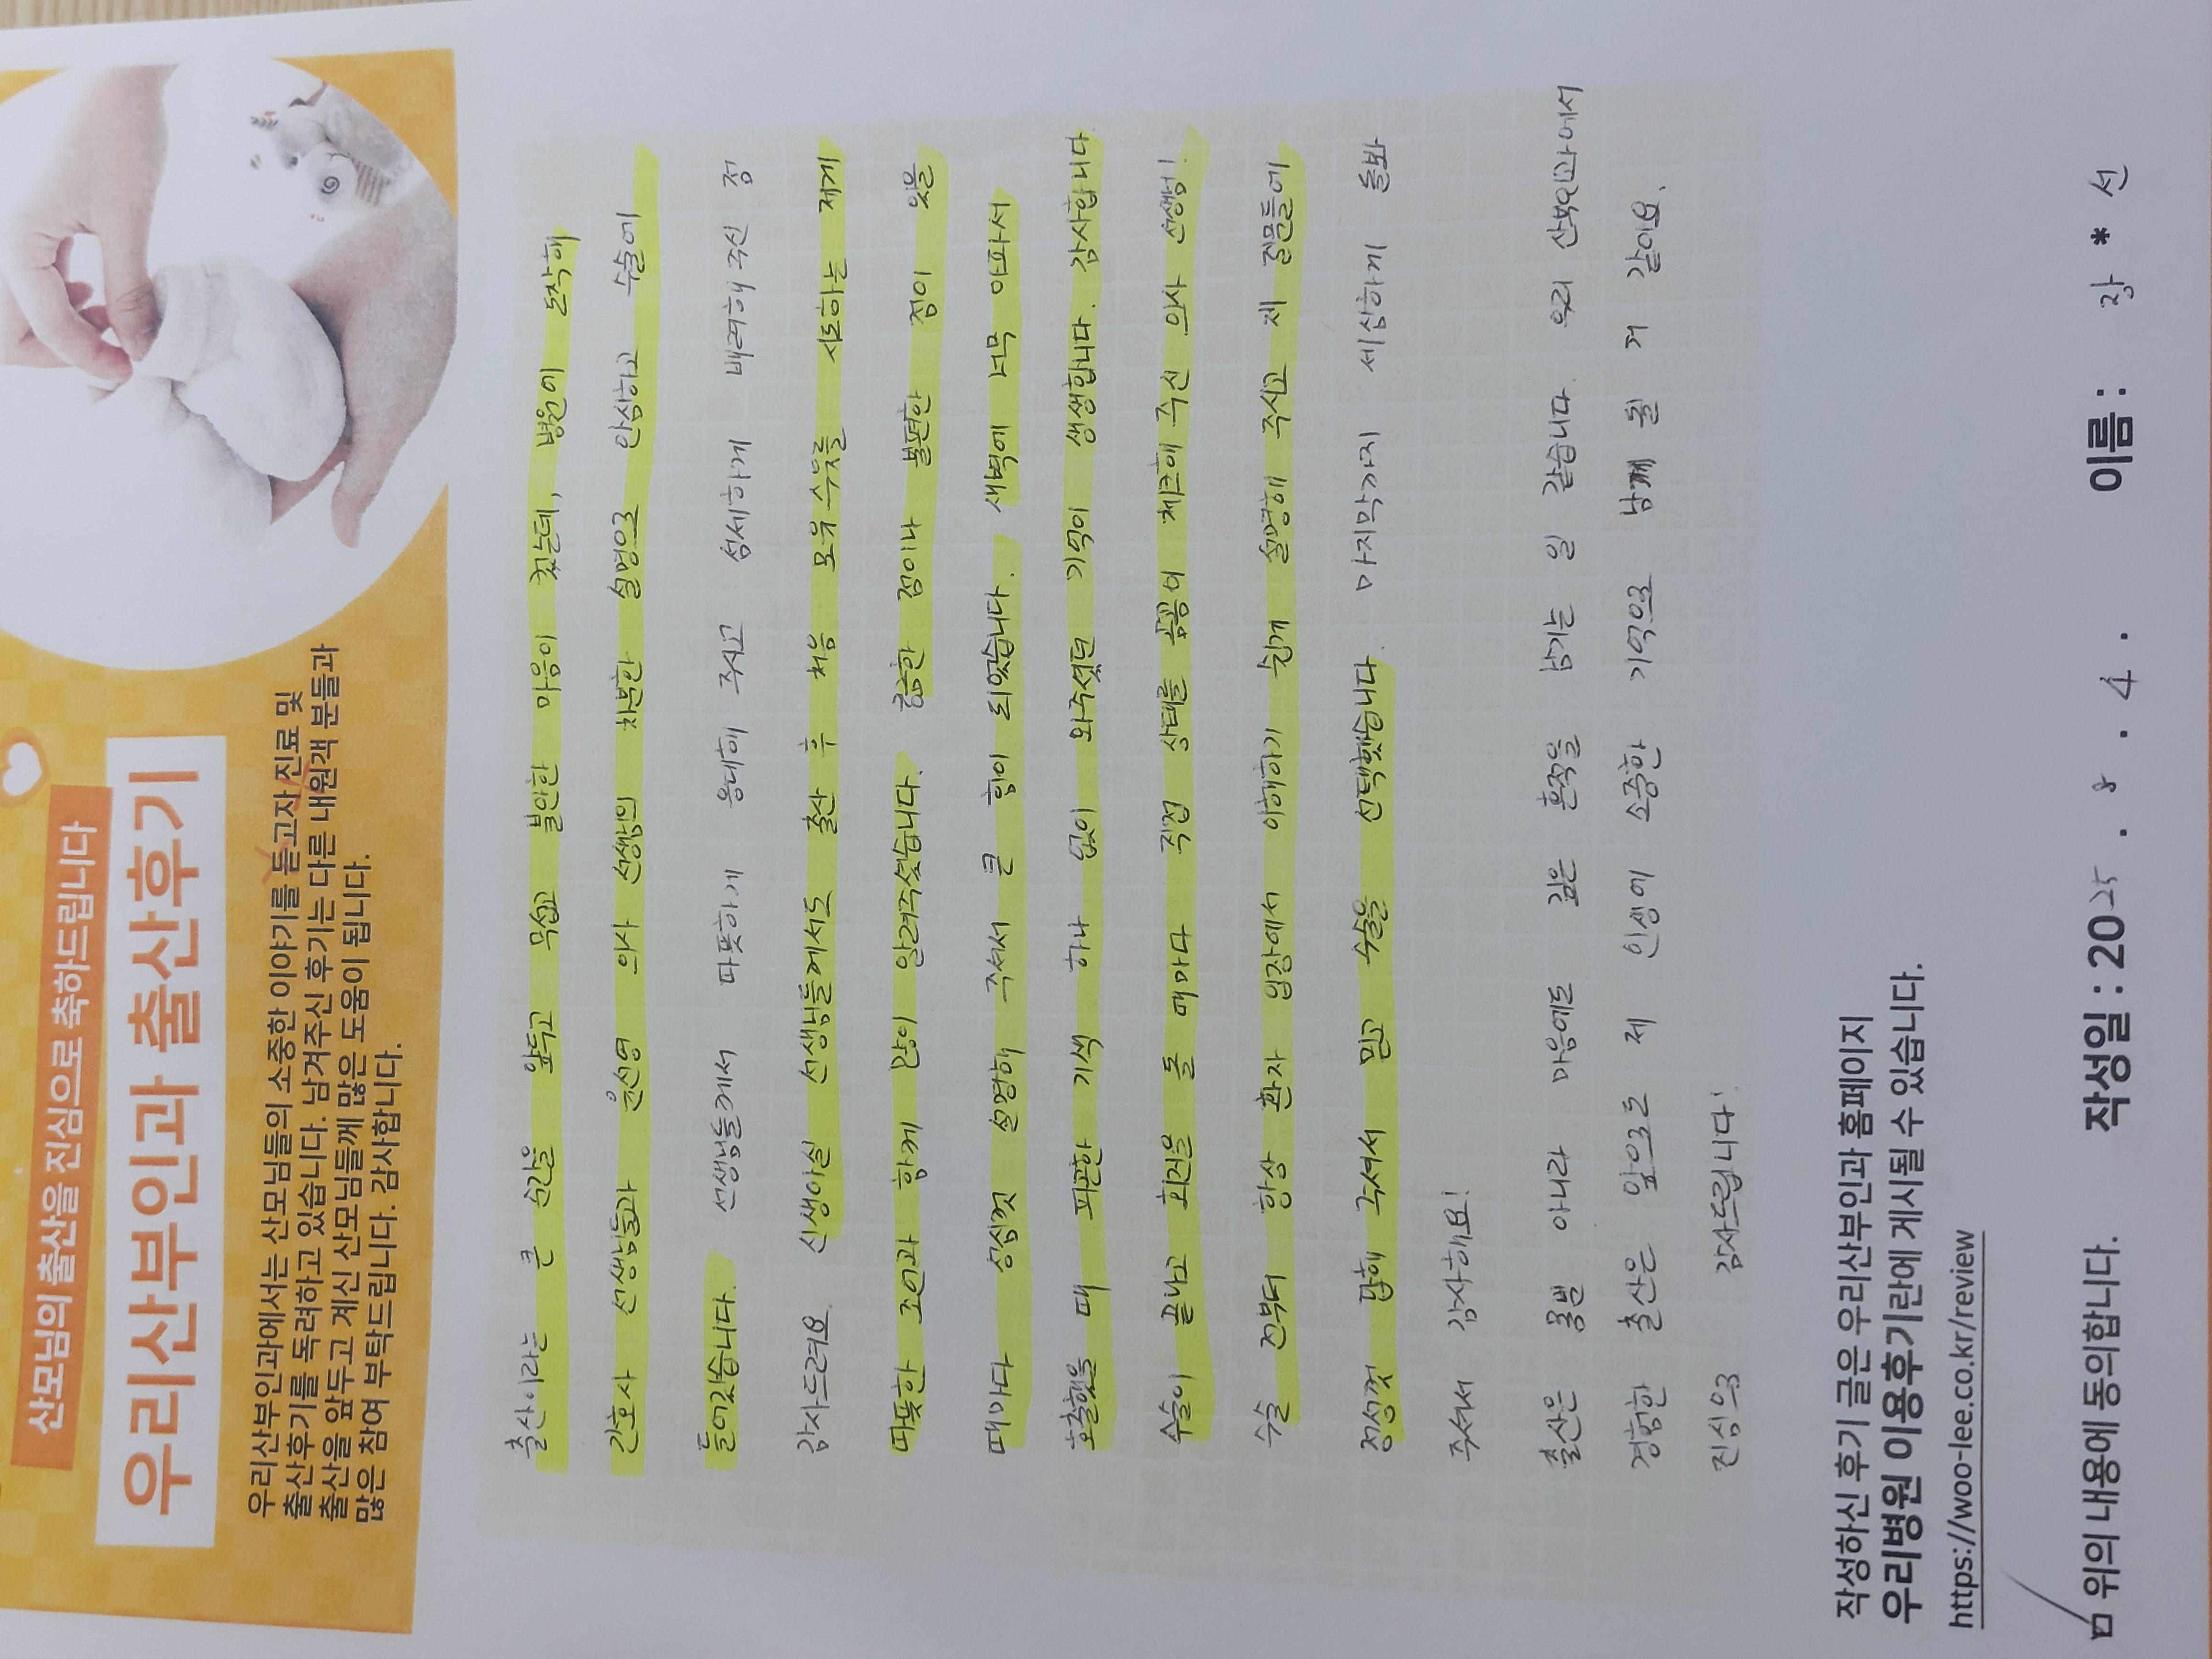 산모님의 출산을 진심으로 축하드립니다
우리산부인과 출산후기
우리산부인과에서는 산모님들의 소중한 이야기를 듣고자 진료 및
출산후기를 독려하고 있습니다. 남겨주신 후기는 다른 내원객 분들과
출산을 앞두고 계신 산모님들께 많은 도움이 됩니다.
많은 참여 부탁드립니다. 감사합니다.
출산이라는 큰 순간을 앞두고 무섭고 불안한 마음이 컸는데, 병원에 도착해
간호사 선생님들과 윤신영 의사 선생님의 차분한 설명으로 안심하고 수술에
들어갔습니다. 선생님들께서 따뜻하게 응대해 주시고 섬세하게 배려해 주신 점
감사드려요. 신생아실 선생님들께서도 출산 후 처음 모유 수유를 시도하는 제게
따뜻한 조언과 함께 많이 알려주셨습니다. 궁금한 점이나 불편한 점이 있을
때마다 성심껏 설명해 주셔서 큰 힘이 되었습니다. 새벽에 너무 아파서
호출했을 때 피곤한 기색 하나 없이 와주셨던 기억이 생생합니다. 감사합니다.
수술이 끝나고 회진을 돌 때마다 직접 상태를 꼼꼼히 체크해 주신 의사 선생님!
수술 전부터 항상 환자 입장에서 이해하기 쉽게 설명해 주시고 제 질문들에
정성껏 답해 주셔서 믿고 수술을 선택했습니다. 마지막까지 세심하게 돌봐
주셔서 감사해요!
출산은 몸뿐 아니라 마음에도 깊은 흔적을 남기는 일 같습니다. 우리 산부인과에서
경험한 출산은 앞으로도 제 인생에 소중한 기억으로 남게 될 거 같아요.
진심으로 감사드립니다!
작성하신 후기 글은 우리산부인과 홈페이지
우리병원 이용후기란에 게시될 수 있습니다.
https://woo-lee.co.kr/review
위의 내용에 동의합니다. 작성일 : 2025 . 8 . 4 . 이름 : 장 * 선